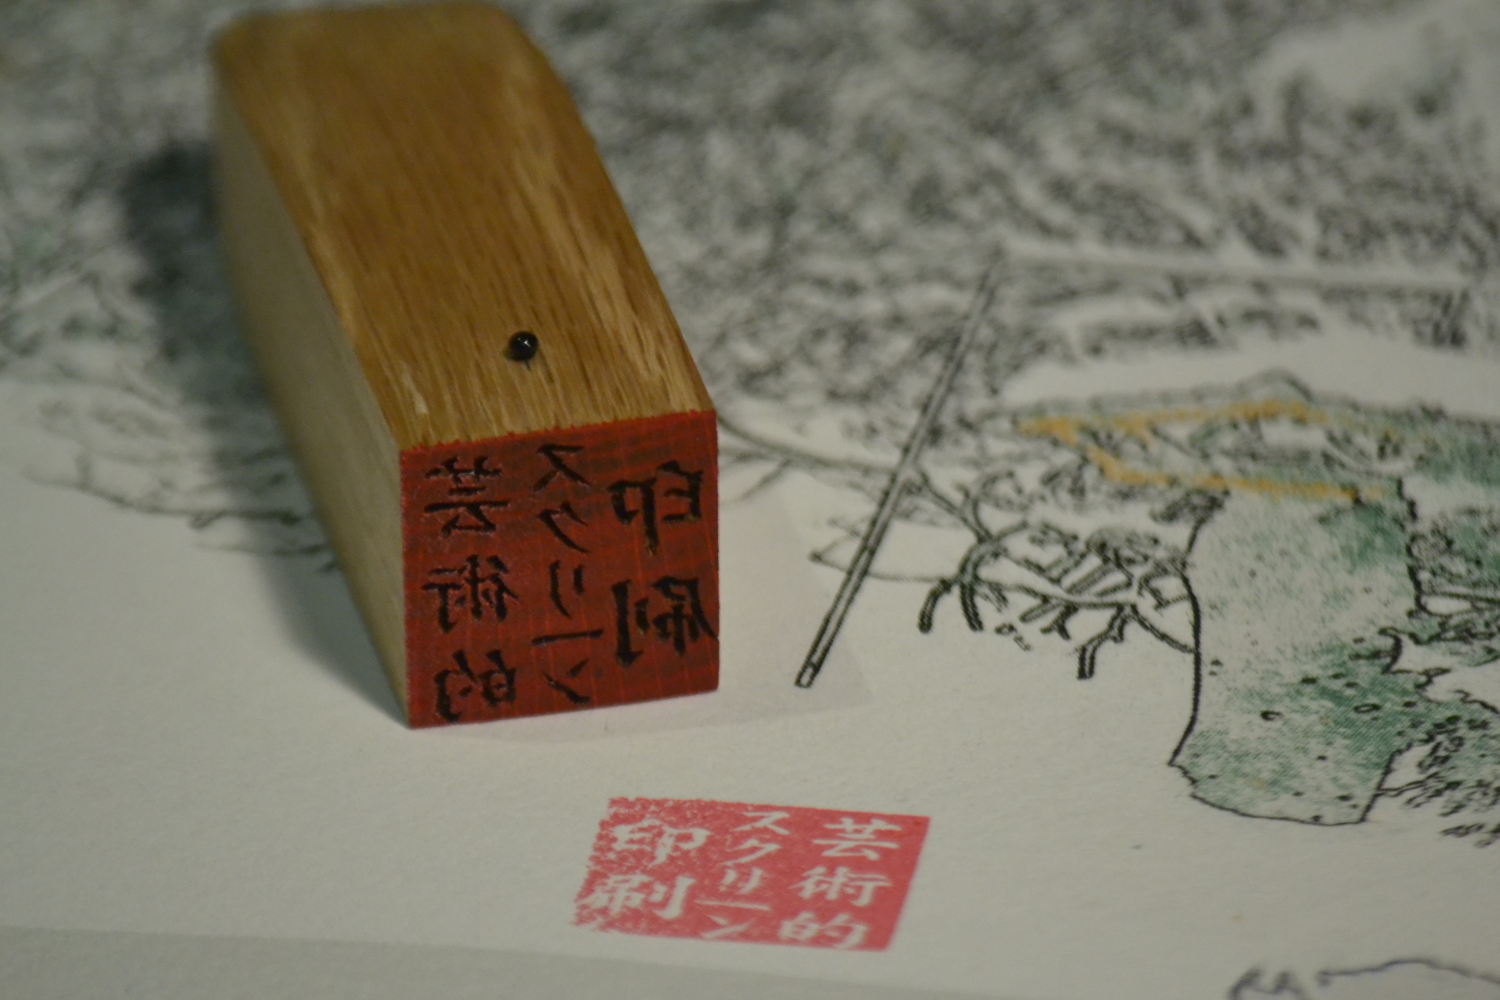 芸術的
スクリーン
印刷
芸術的
スクリーン
印刷